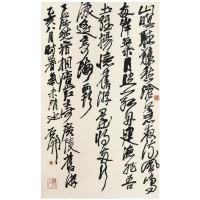 山暝聽猿愁滄江急夜流風鳴
兩岸葉月照一孤舟建德非吾
土維揚憶舊游還將兩行
淚遙寄海西頭
孟浩然宿桐廬江寄廣陵舊游
乙亥八月時暑氣未消也